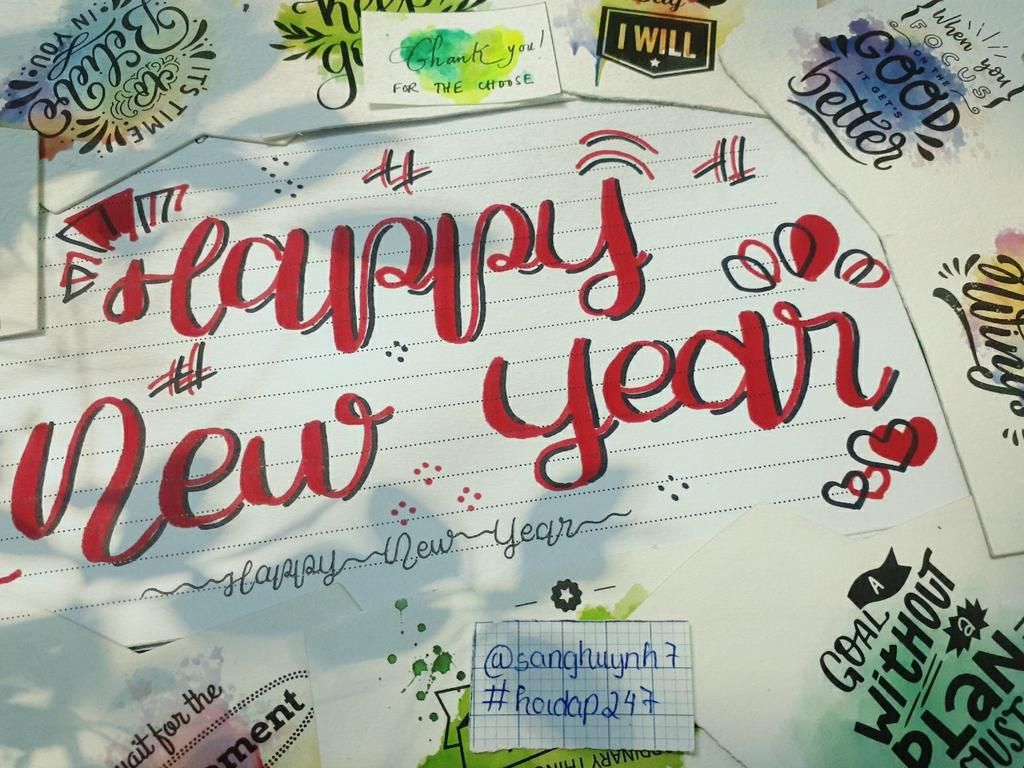 IT'S TIME
to
Believe
IN YOU
Thank you!
FOR THE CHOOSE
I WILL
When you
FOCUS
ON THE
GOOD
IT GETS
better
Happy
New year
Happy New Year
@sanghuynh7
#hoidap247
wait for the
A
GOAL
without
a
PLAN
JUST